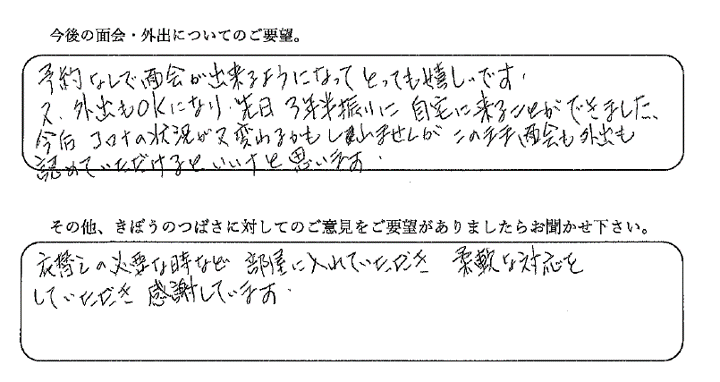 今後の面会・外出についてのご要望。
予約なしで面会が出来るようになってとっても嬉しいです.
又、外出もOKになり、先日 3年半振りに 自宅に来ることができました、
今后 コロナの状況が又変わるかもしれませんが このまま面会も外出も
認めていただけるといいナと思います.
その他、きぼうのつばさに対してのご意見をご要望がありましたらお聞かせ下さい。
衣替えの必要な時など 部屋に入れていただき 柔軟な対応を
していただき 感謝しています.